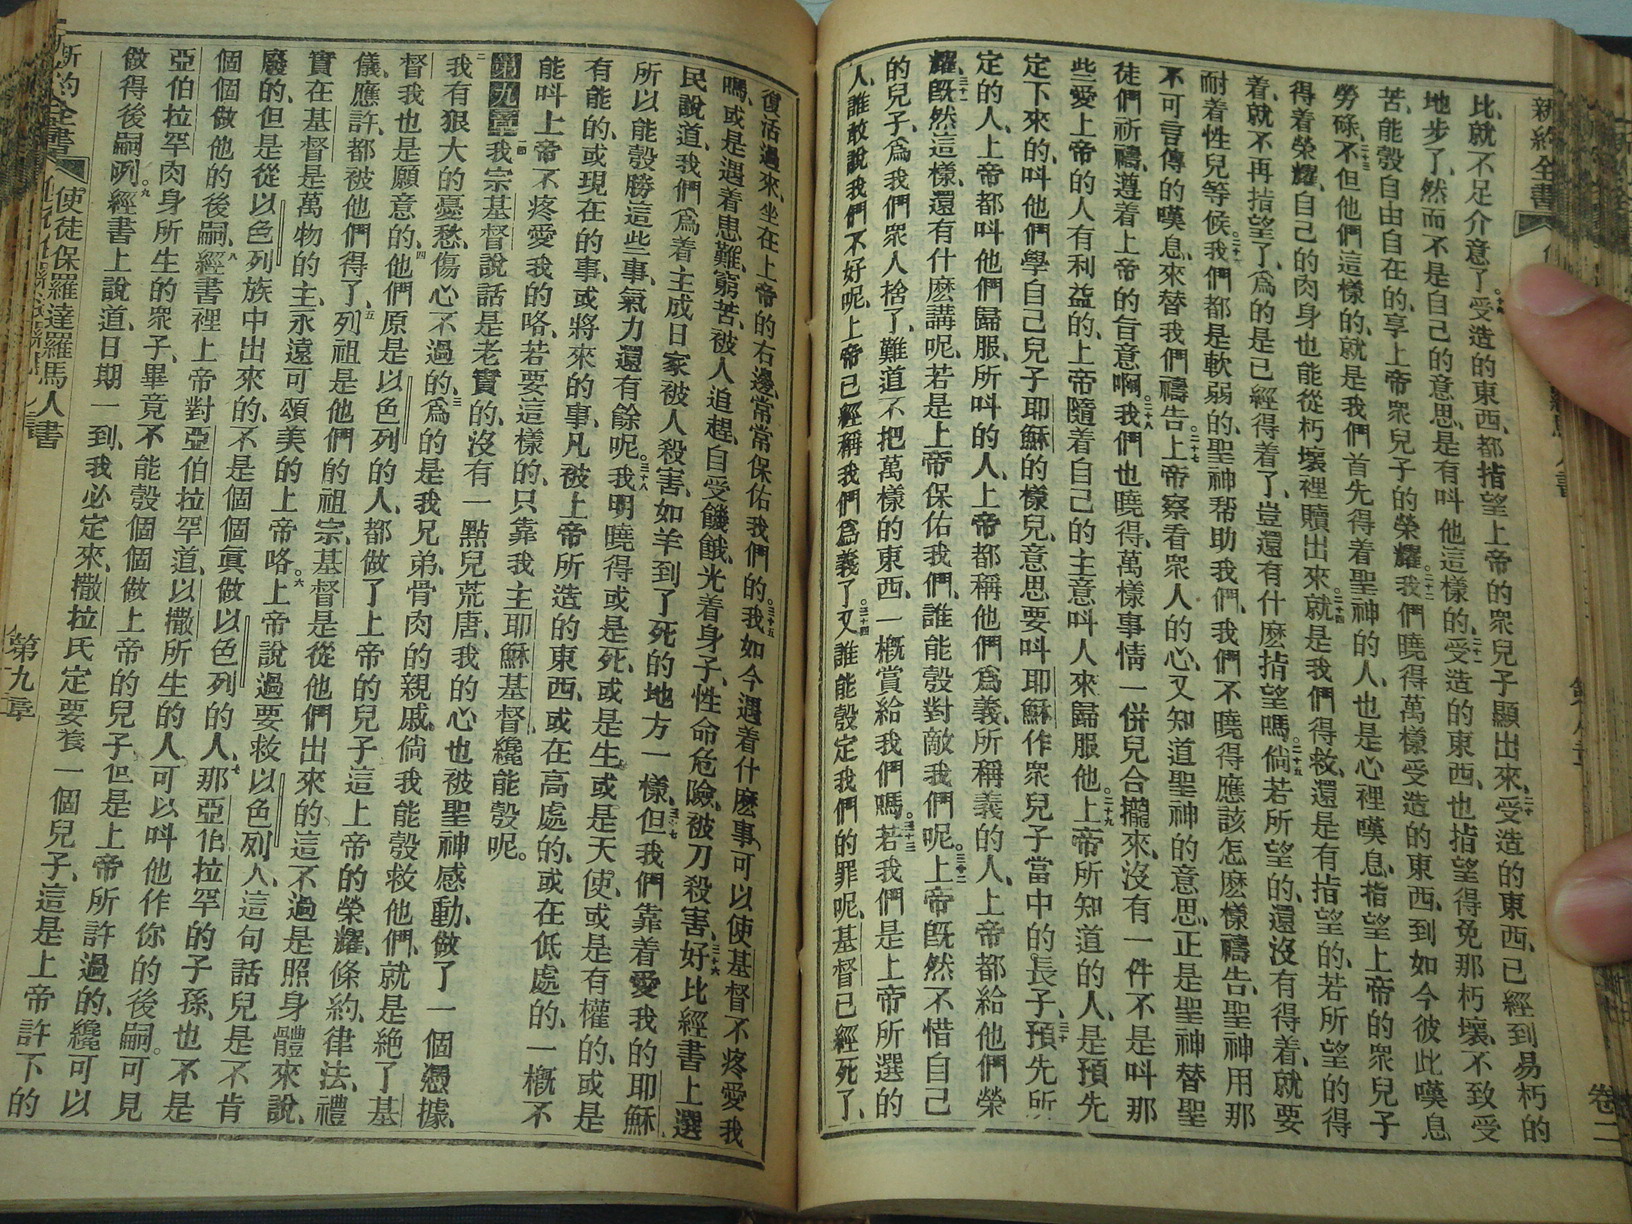 新約全書
比、就不足介意了。十九受造的東西、都指望上帝的衆兒子顯出來、二十受造的東西、已經到易朽的
地步了、然而不是自己的意思、是有呌他這樣的、二十一受造的東西、也指望得免那朽壞、不致受
苦、能彀自由自在的、享上帝衆兒子的榮耀。二十二我們曉得萬樣受造的東西、到如今彼此嘆息
勞碌、二十三不但他們這樣的、就是我們首先得着聖神的人、也是心裡嘆息、指望上帝的衆兒子
得着榮耀、自己的肉身也能從朽壞裡贖出來。二十四就是我們得救、還是有指望的、若所望的得
着、就不再指望了、爲的是已經得着了、豈還有什麽指望嗎。二十五倘若所望的、還沒有得着、就要
耐着性兒等候。二十六我們都是軟弱的、聖神帮助我們、我們不曉得應該怎麽樣禱告、聖神用那
不可言傳的嘆息、來替我們禱告。二十七上帝察看衆人的心、又知道聖神的意思、正是聖神替聖
徒們祈禱、遵着上帝的旨意啊。二十八我們也曉得、萬樣事情一倂兒合攏來、沒有一件不是呌那
些愛上帝的人有利益的、上帝隨着自己的主意、呌人來歸服他。二十九上帝所知道的人、是預先
定下來的、呌他們學自己兒子耶穌的樣兒、意思要呌耶穌作衆兒子當中的長子、三十預先所
定的人、上帝都呌他們歸服、所呌的人、上帝都稱他們爲義、所稱義的人、上帝都給他們榮
耀。三十一旣然這樣、還有什麽講呢、若是上帝保佑我們、誰能彀對敵我們呢。三十二上帝旣然不惜自己
的兒子、爲我們衆人捨了、難道不把萬樣的東西、一槪賞給我們嗎。三十三若我們是上帝所選的
人、誰敢說我們不好呢、上帝已經稱我們爲義了。三十四又誰能彀定我們的罪呢、基督已經死了、
卷二
復活過來、坐在上帝的右邊、常常保佑我們的。三十五我如今遇着什麽事、可以使基督不疼愛我
嗎、或是遇着患難、窮苦、被人追趕、自受饑餓、光着身子、性命危險、被刀殺害、三十六好比經書上選
民說道、我們爲着主成日家被人殺害、如羊到了死的地方一樣、三十七但我們靠着愛我的耶穌
所以能彀勝這些事、氣力還有餘呢。三十八我明曉得或是死、或是生、或是天使、或是有權的、或是
有能的、或現在的事、或將來的事、凡被上帝所造的東西、或在高處的、或在低處的、一槪不
能呌上帝不疼愛我的咯、若要這樣的、只靠我主耶穌基督、纔能彀呢。
第九章一我宗基督說話是老實的、沒有一點兒荒唐、我的心也被聖神感動、做了一個憑據、
二我有狠大的憂愁、傷心不過的、三爲的是我兄弟、骨肉的親戚、倘我能彀救他們、就是絶了基
督我也是願意的、四他們原是以色列的人、都做了上帝的兒子、這上帝的榮耀、條約、律法、禮
儀、應許、都被他們得了、五列祖是他們的祖宗、基督是從他們出來的、這不過是照身體來說、
實在基督是萬物的主、永遠可頌美的上帝咯。六上帝說過要救以色列人、這句話兒是不肯
廢的、但是從以色列族中出來的、不是個個眞做以色列的人、七那亞伯拉罕的子孫、也不是
個個做他的後嗣、八經書裡上帝對亞伯拉罕道、以撒所生的人、可以呌他作你的後嗣。可見
亞伯拉罕肉身所生的衆子、畢竟不能彀個個做上帝的兒子、但是上帝所許過的、纔可以
做得後嗣咧。九經書上說道、日期一到、我必定來、撒拉氏定要養一個兒子、這是上帝許下的
新約全書
使徒保羅達羅馬人書
第九章